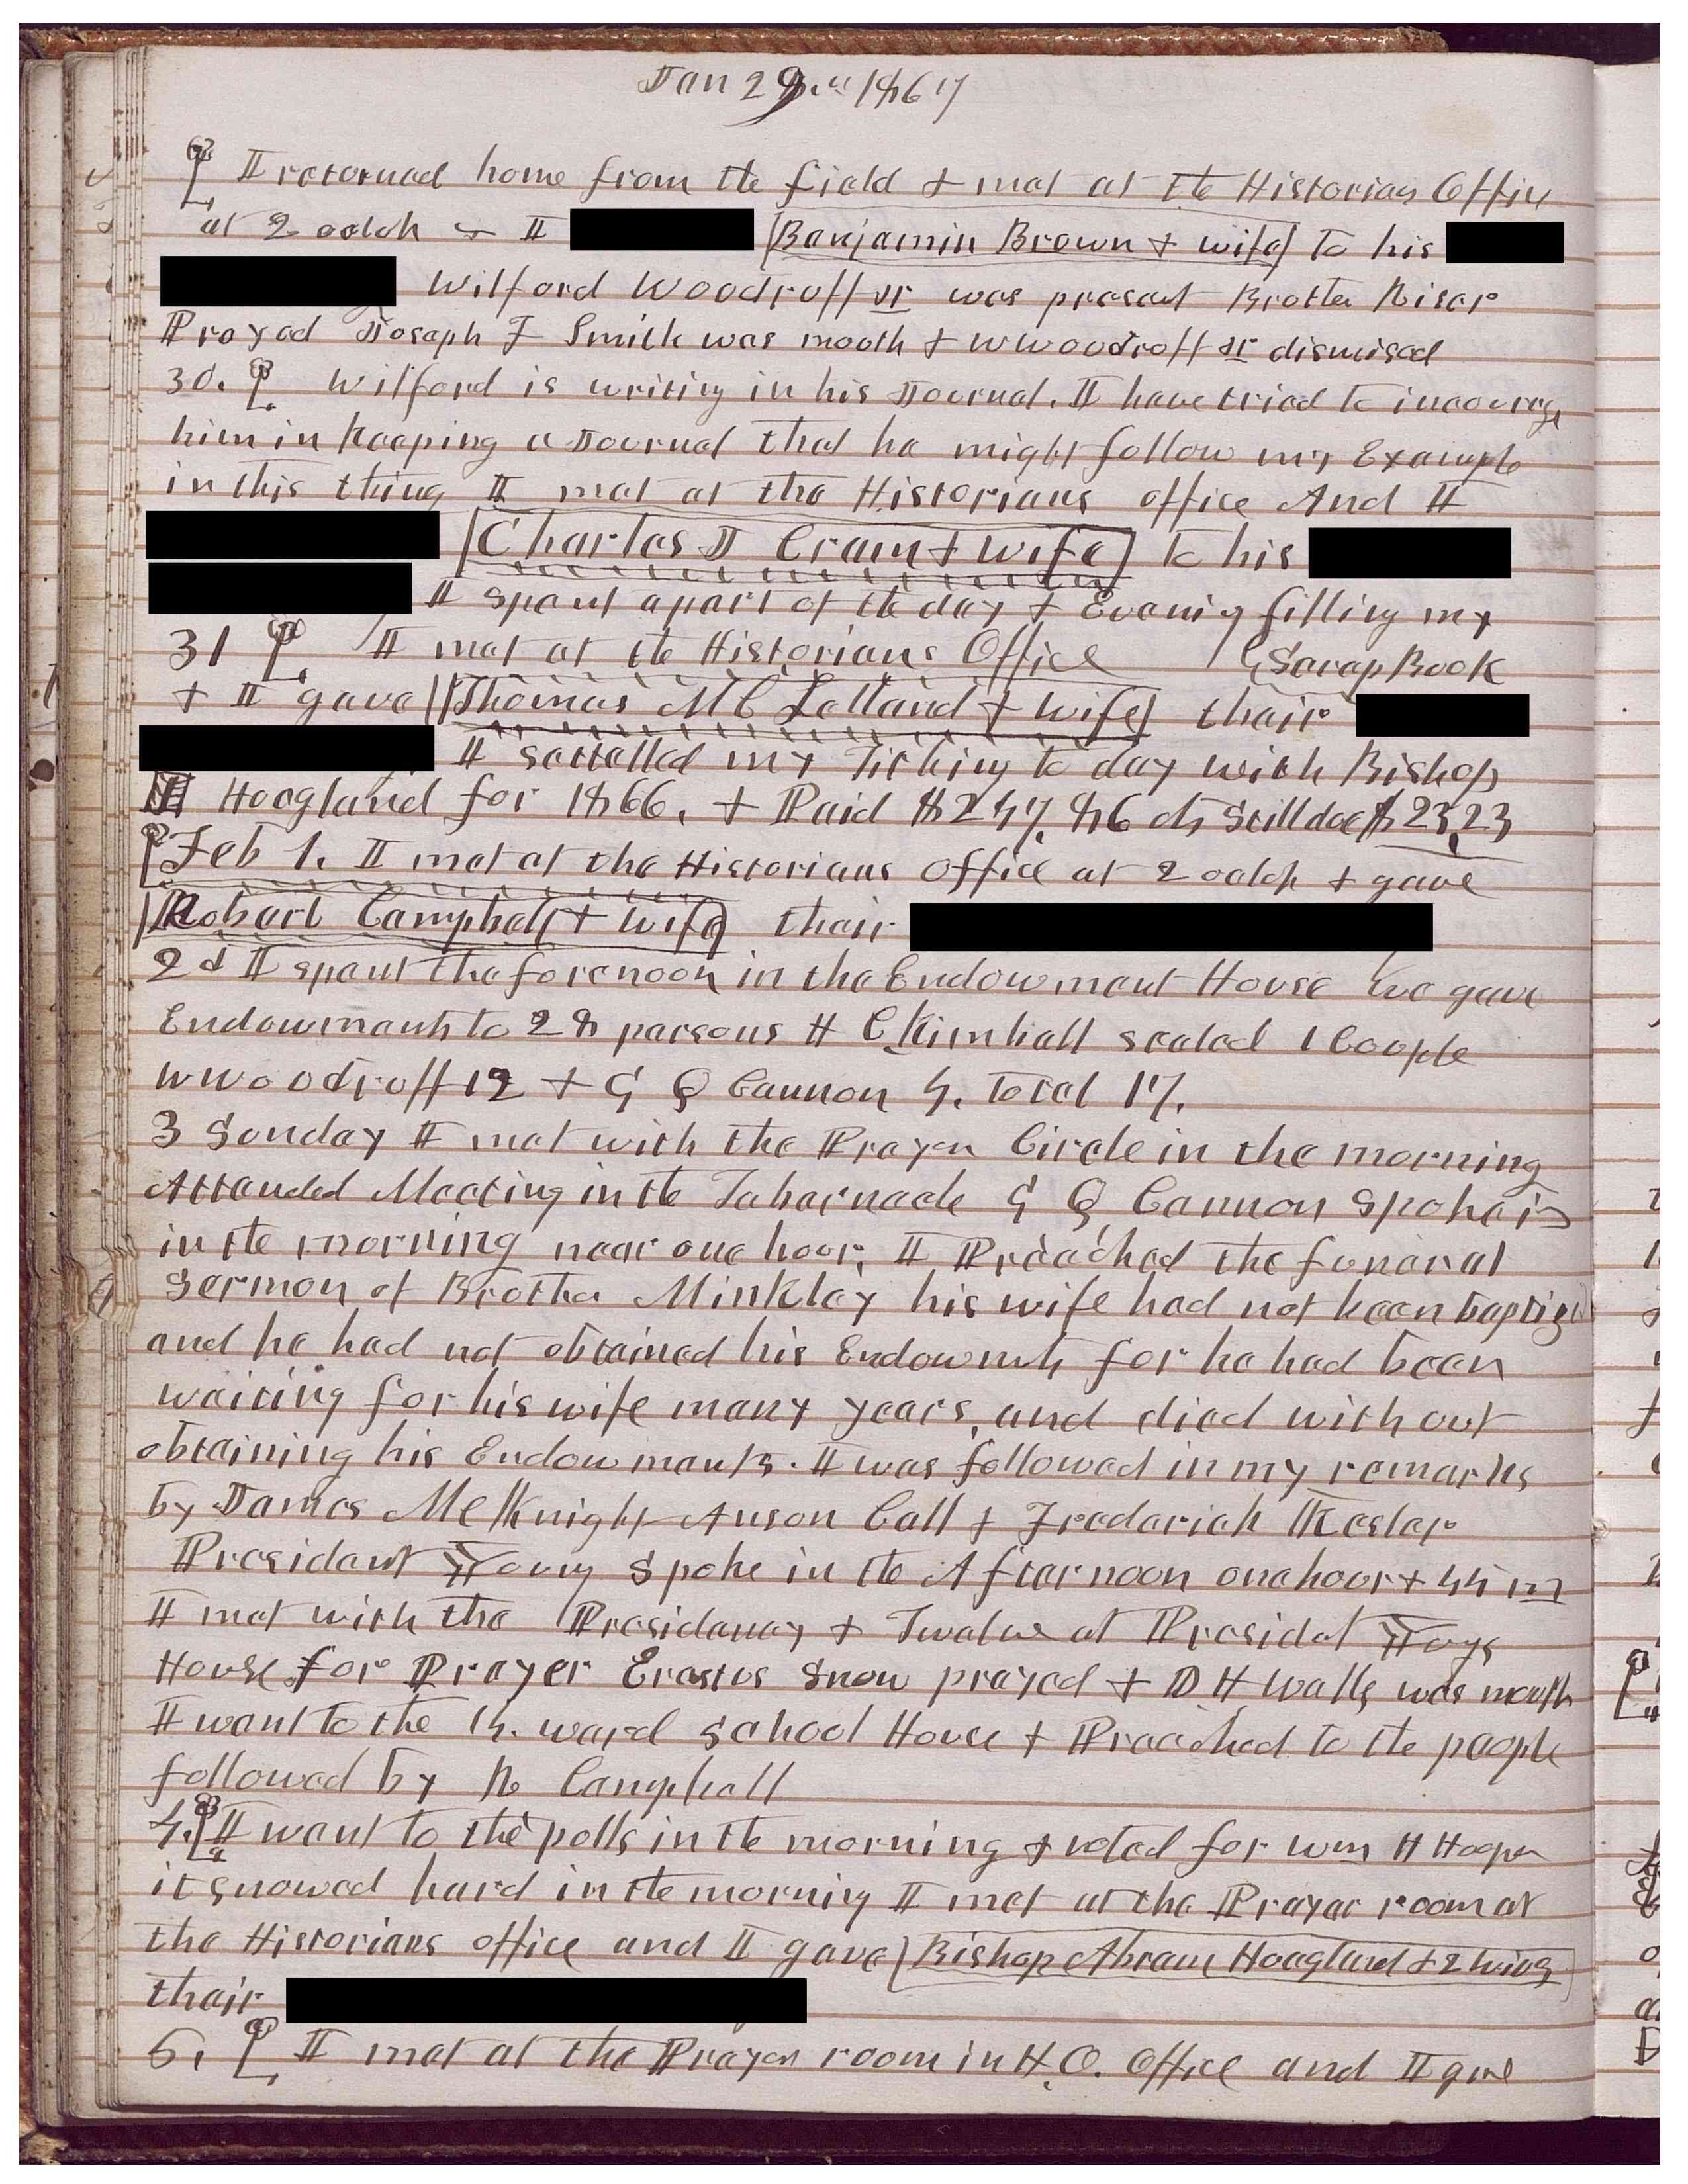 Jan 29th 1867
I returned home from the field & met at the Historians Office
at 2 oclok & I [Benjamin Brown & wife] to his
Wilford Woodruff Jr was present Brother Riser
Prayed Joseph F Smith was mouth & W Woodruff Jr dismised
30. Wilford is writing in his Journal. I have tried to incourage
him in keeping a Journal that he might follow my Example
in this thing I met at the Historians office And I
[Charles I Cram & wife] to his
I spent a part of the day & Evening filling my
31 I met at the Historians Office Scrap Book
& I gave [Thomas Mc Lelland & wife] their
I settelled my Tithing to day with Bishop
Hoagland for 1866. & Paid $247.86 cts Still due $23.23
Feb 1. I met at the Historians Office at 2 oclok & gave
[Robert Campbell & wife] their
2d I spent the forenoon in the Endowment House we gave
Endowments to 28 persons H C Kimball sealed 1 Couple
W Woodruff 12 & G Q Cannon 4. Total 17.
3 Sunday I met with the Prayer Circle in the morning
Attended Meeting in the Tabernacle G Q Cannon spoke
in the morning near one hour. I Preached the funeral
Sermon of Brother Minkley his wife had not been baptized
and he had not obtained his Endowmts for he had been
waiting for his wife many years, and died without
obtaining his Endowments. I was followed in my remarks
by James McKnight Anson Call & Frederick Kesler
President Young Spoke in the Afternoon one hour & 44 m
I met with the Presidency & Twelve at Presidet Youngs
House for Prayer Erastus Snow prayed & D H Wells was mouth
I went to the 14. ward School House & Preached to the people
followed by R Campbell
4. I went to the polls in the morning & voted for Wm H Hooper
it snowed hard in the morning I met at the Prayer room at
the Historians office and I gave [Bishop Abram Hoagland & 2 wives
their
5. I met at the Prayer room in H.O. Office and I gave